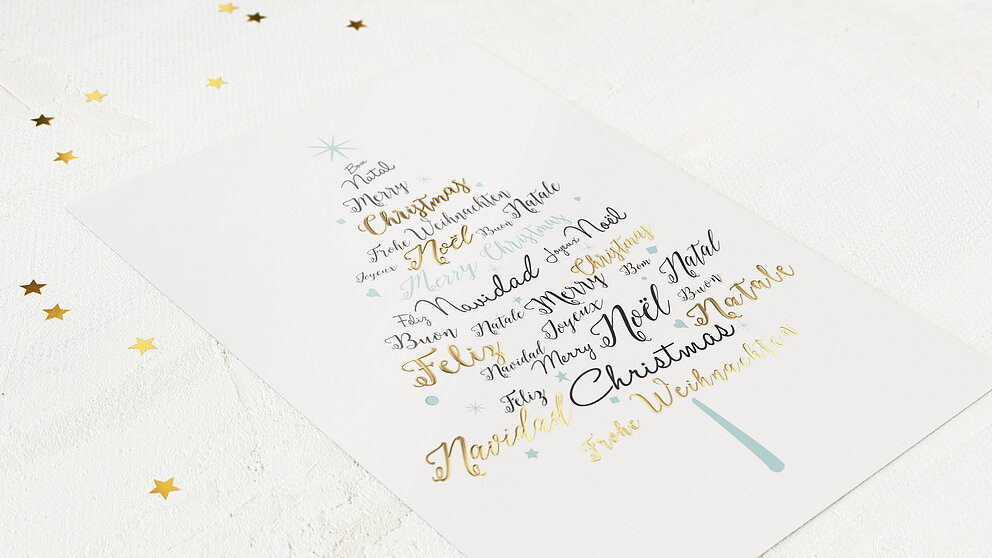 Bom
Natal
Merry
Christmas
Frohe Weihnachten
Joyeux Noël Buon Natale
Merry Christmas
Joyeux Noël
Feliz Navidad
Buon Natale Merry Christmas
Joyeux Bom Natal
Feliz Navidad Noël Buon
Merry Natale
Feliz Christmas
Navidad
Frohe Weihnachten